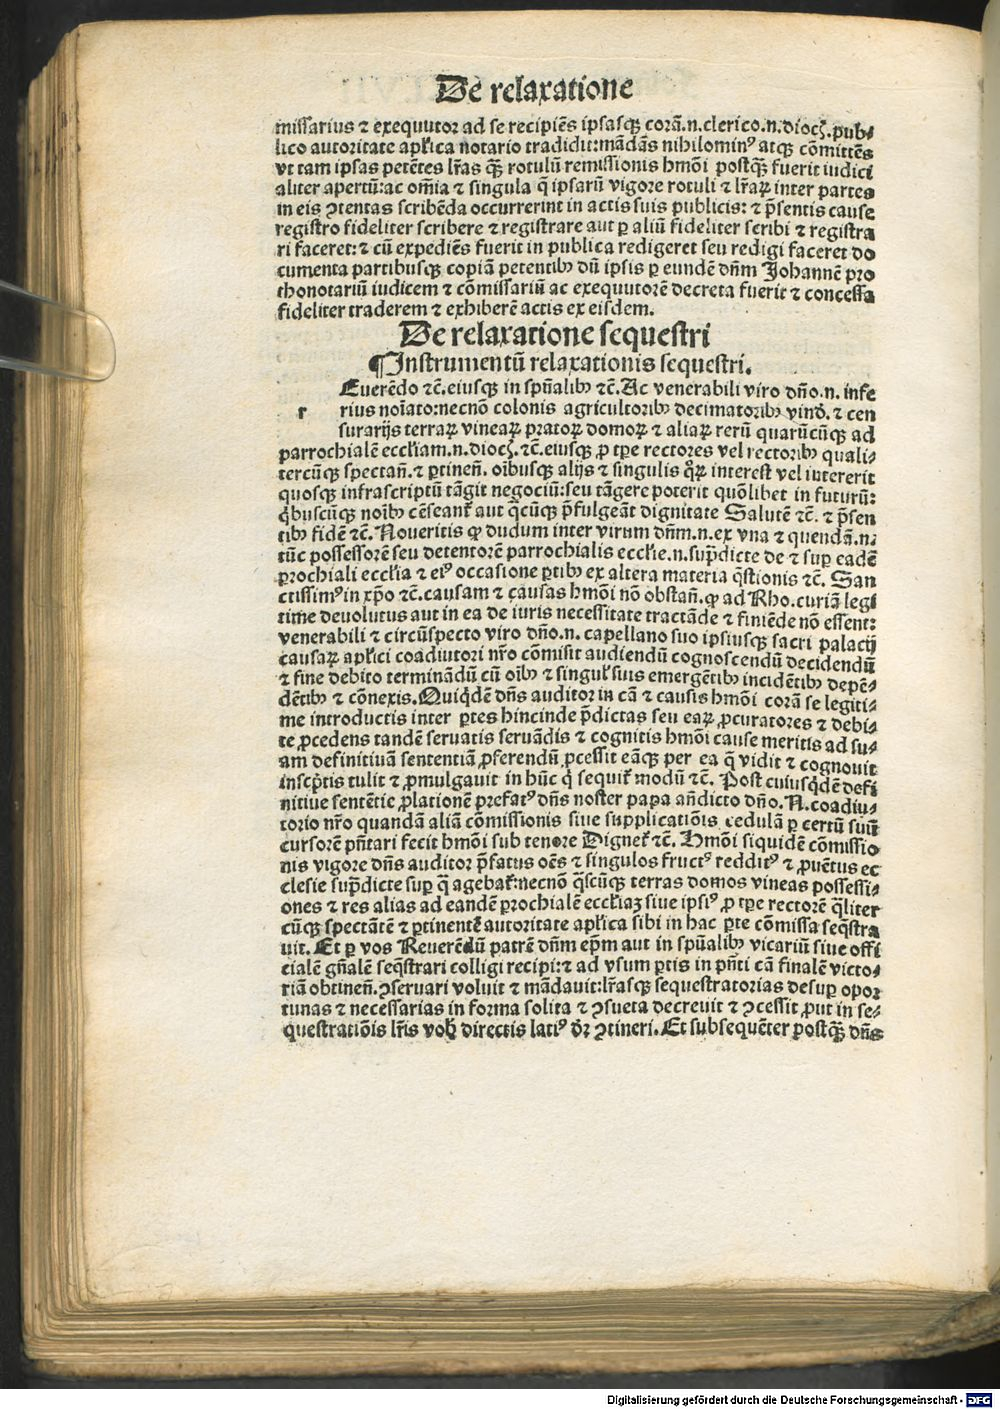 De relaxatione
missarius ⁊ exequutor ad se recipiẽs ipsasqꝫ corã.n.clerico.n.dioc̃.pub⸗
lico autoritate apl̃ica notario tradidit:mãdãs nihilominꝰ atqꝫ cõmittẽs
vt tam ipsas petẽtes lr̃as qꝫ̃ rotulũ remissionis hmõi postqꝫ̃ fuerit iudici
aliter apertũ:ac om̃ia ⁊ singula q̃ ipsarũ vigore rotuli ⁊ lr̃aꝝ inter partes
in eis ꝯtentas scribẽda occurrerint in actis suis publicis: ⁊ p̃sentis cause
registro fideliter scribere ⁊ registrare aut ꝑ aliũ fideliter scribi ⁊ registra
ri faceret:⁊ cũ expediẽs fuerit in publica redigeret seu redigi faceret do
cumenta partibusqꝫ copiã petentibꝫ dũ ipsis ꝑ eundẽ dñm Johannẽ pro
thonotariũ iudicem ⁊ cõmissariũ ac exequutorẽ decreta fuerit ⁊ concessa
fideliter traderem ⁊ exhiberẽ actis ex eisdem.
De relaxatione sequestri
¶Instrumentũ relaxationis sequestri.
Euerẽdo ⁊c̃.eiusqꝫ in spũalibꝫ ⁊c̃.Ac venerabili viro dño.n. infe
r rius noĩato:necnõ colonis agricultoribꝫ decimatoribꝫ vinđ. ⁊ cen
surarijs terraꝝ vineaꝝ pratoꝝ domoꝝ ⁊ aliaꝝ rerũ quarũcũqꝫ ad
parrochialẽ eccl̃iam.n.dioc̃.⁊c̃.eiusqꝫ ꝓ tp̃e rectores vel rectoribꝫ quali⸗
tercũqꝫ spectañ.⁊ ꝑtineñ. oĩbusqꝫ alijs ⁊ singulis q̃ꝝ interest vel intererit
quosqꝫ infrascriptũ tãgit negociũ:seu tãgere poterit quõlibet in futurũ:
qͥbuscũqꝫ noĩbꝫ cẽseant̃ aut q̃cũqꝫ p̃fulgeãt dignitate Salutẽ ⁊c̃. ⁊ p̃sen
tibꝫ fidẽ ⁊c̃. Noueritis ꝙ dudum inter virum dñm.n.ex vna ⁊ quendã.n.
tũc possessorẽ seu detentorẽ parrochialis eccl̃ie.n.sup̃dicte de ⁊ suꝑ eadẽ
ꝑrochiali eccl̃ia ⁊ eiꝰ occasione ꝑtibꝫ ex altera materia q̃stionis ⁊c̃. San
ctissimꝰ in xp̃o ⁊c̃.causam ⁊ causas hmõi nõ obstañ.ꝙ ad Rho.curiã legi
time deuolutus aut in ea de iuris necessitate tractãde ⁊ finiẽde nõ essent:
venerabili ⁊ circũspecto viro dño.n. capellano suo ipsiusqꝫ sacri palacij
causaꝝ apl̃ici coadiutori nr̃o cõmisit audiendũ cognoscendũ decidendũ
⁊ fine debito terminãdũ cũ oĩbꝫ ⁊ singul̃ suis emergẽtibꝫ incidẽtibꝫ depẽ⸗
dẽtibꝫ ⁊ cõnexis.Quiqͥdẽ dñs auditor in cã ⁊ causis hmõi corã se legiti⸗
me introductis inter ꝑtes hincinde p̃dictas seu eaꝝ ꝓcuratores ⁊ debi⸗
te ꝓcedens tandẽ seruatis seruãdis ⁊ cognitis hmõi cause meritis ad su⸗
am definitiuã sententiã ꝓferendũ ꝓcessit eãqꝫ per ea q̃ vidit ⁊ cognouit
inscp̃tis tulit ⁊ ꝓmulgauit in hũc qͥ sequit̃ modũ ⁊c̃. Post cuiusqͥdẽ defi
nitiue sentẽtie ꝓlationẽ prefatꝰ dñs noster papa añdicto dño.N.coadiu⸗
torio nr̃o quandã aliã cõmissionis siue supplicatiõis cedulã ꝑ certũ suũ
cursorẽ pñtari fecit hmõi sub tenore Dignet̃ ⁊c̃. Hmõi siquidẽ cõmissio
nis vigore dñs auditor p̃fatus oẽs ⁊ singulos fructꝰ redditꝰ ⁊ ꝓuẽtus ec
clesie sup̃dicte suꝑ q̃ agebat̃:necnõ q̃scũqꝫ terras domos vineas possessi⸗
ones ⁊ res alias ad eandẽ ꝑrochialẽ eccl̃iaꝫ siue ipsiꝰ ꝓ tp̃e rectorẽ q̃liter
cũqꝫ spectãtẽ ⁊ ꝑtinentẽ autoritate apl̃ica sibi in hac ꝑte cõmissa seq̃stra
uit. Et ꝑ vos Reuerẽdũ patrẽ dñm ep̃m aut in spũalibꝫ vicariũ siue offi
cialẽ gñalẽ seq̃strari colligi recipi:⁊ ad vsum ꝑtis in pñti cã finalẽ victo⸗
riã obtineñ.ꝯseruari voluit ⁊ mãdauit:lr̃asqꝫ sequestratorias desuꝑ opor
tunas ⁊ necessarias in forma solita ⁊ ꝯsueta decreuit ⁊ ꝯcessit ꝓut in se⸗
questratiõis lr̃is vob̃ directis latiꝰ dr̃ ꝯtineri. Et subsequẽter postqꝫ̃ dñs
Digitalisierung gefördert durch die Deutsche Forschungsgemeinschaft - DFG